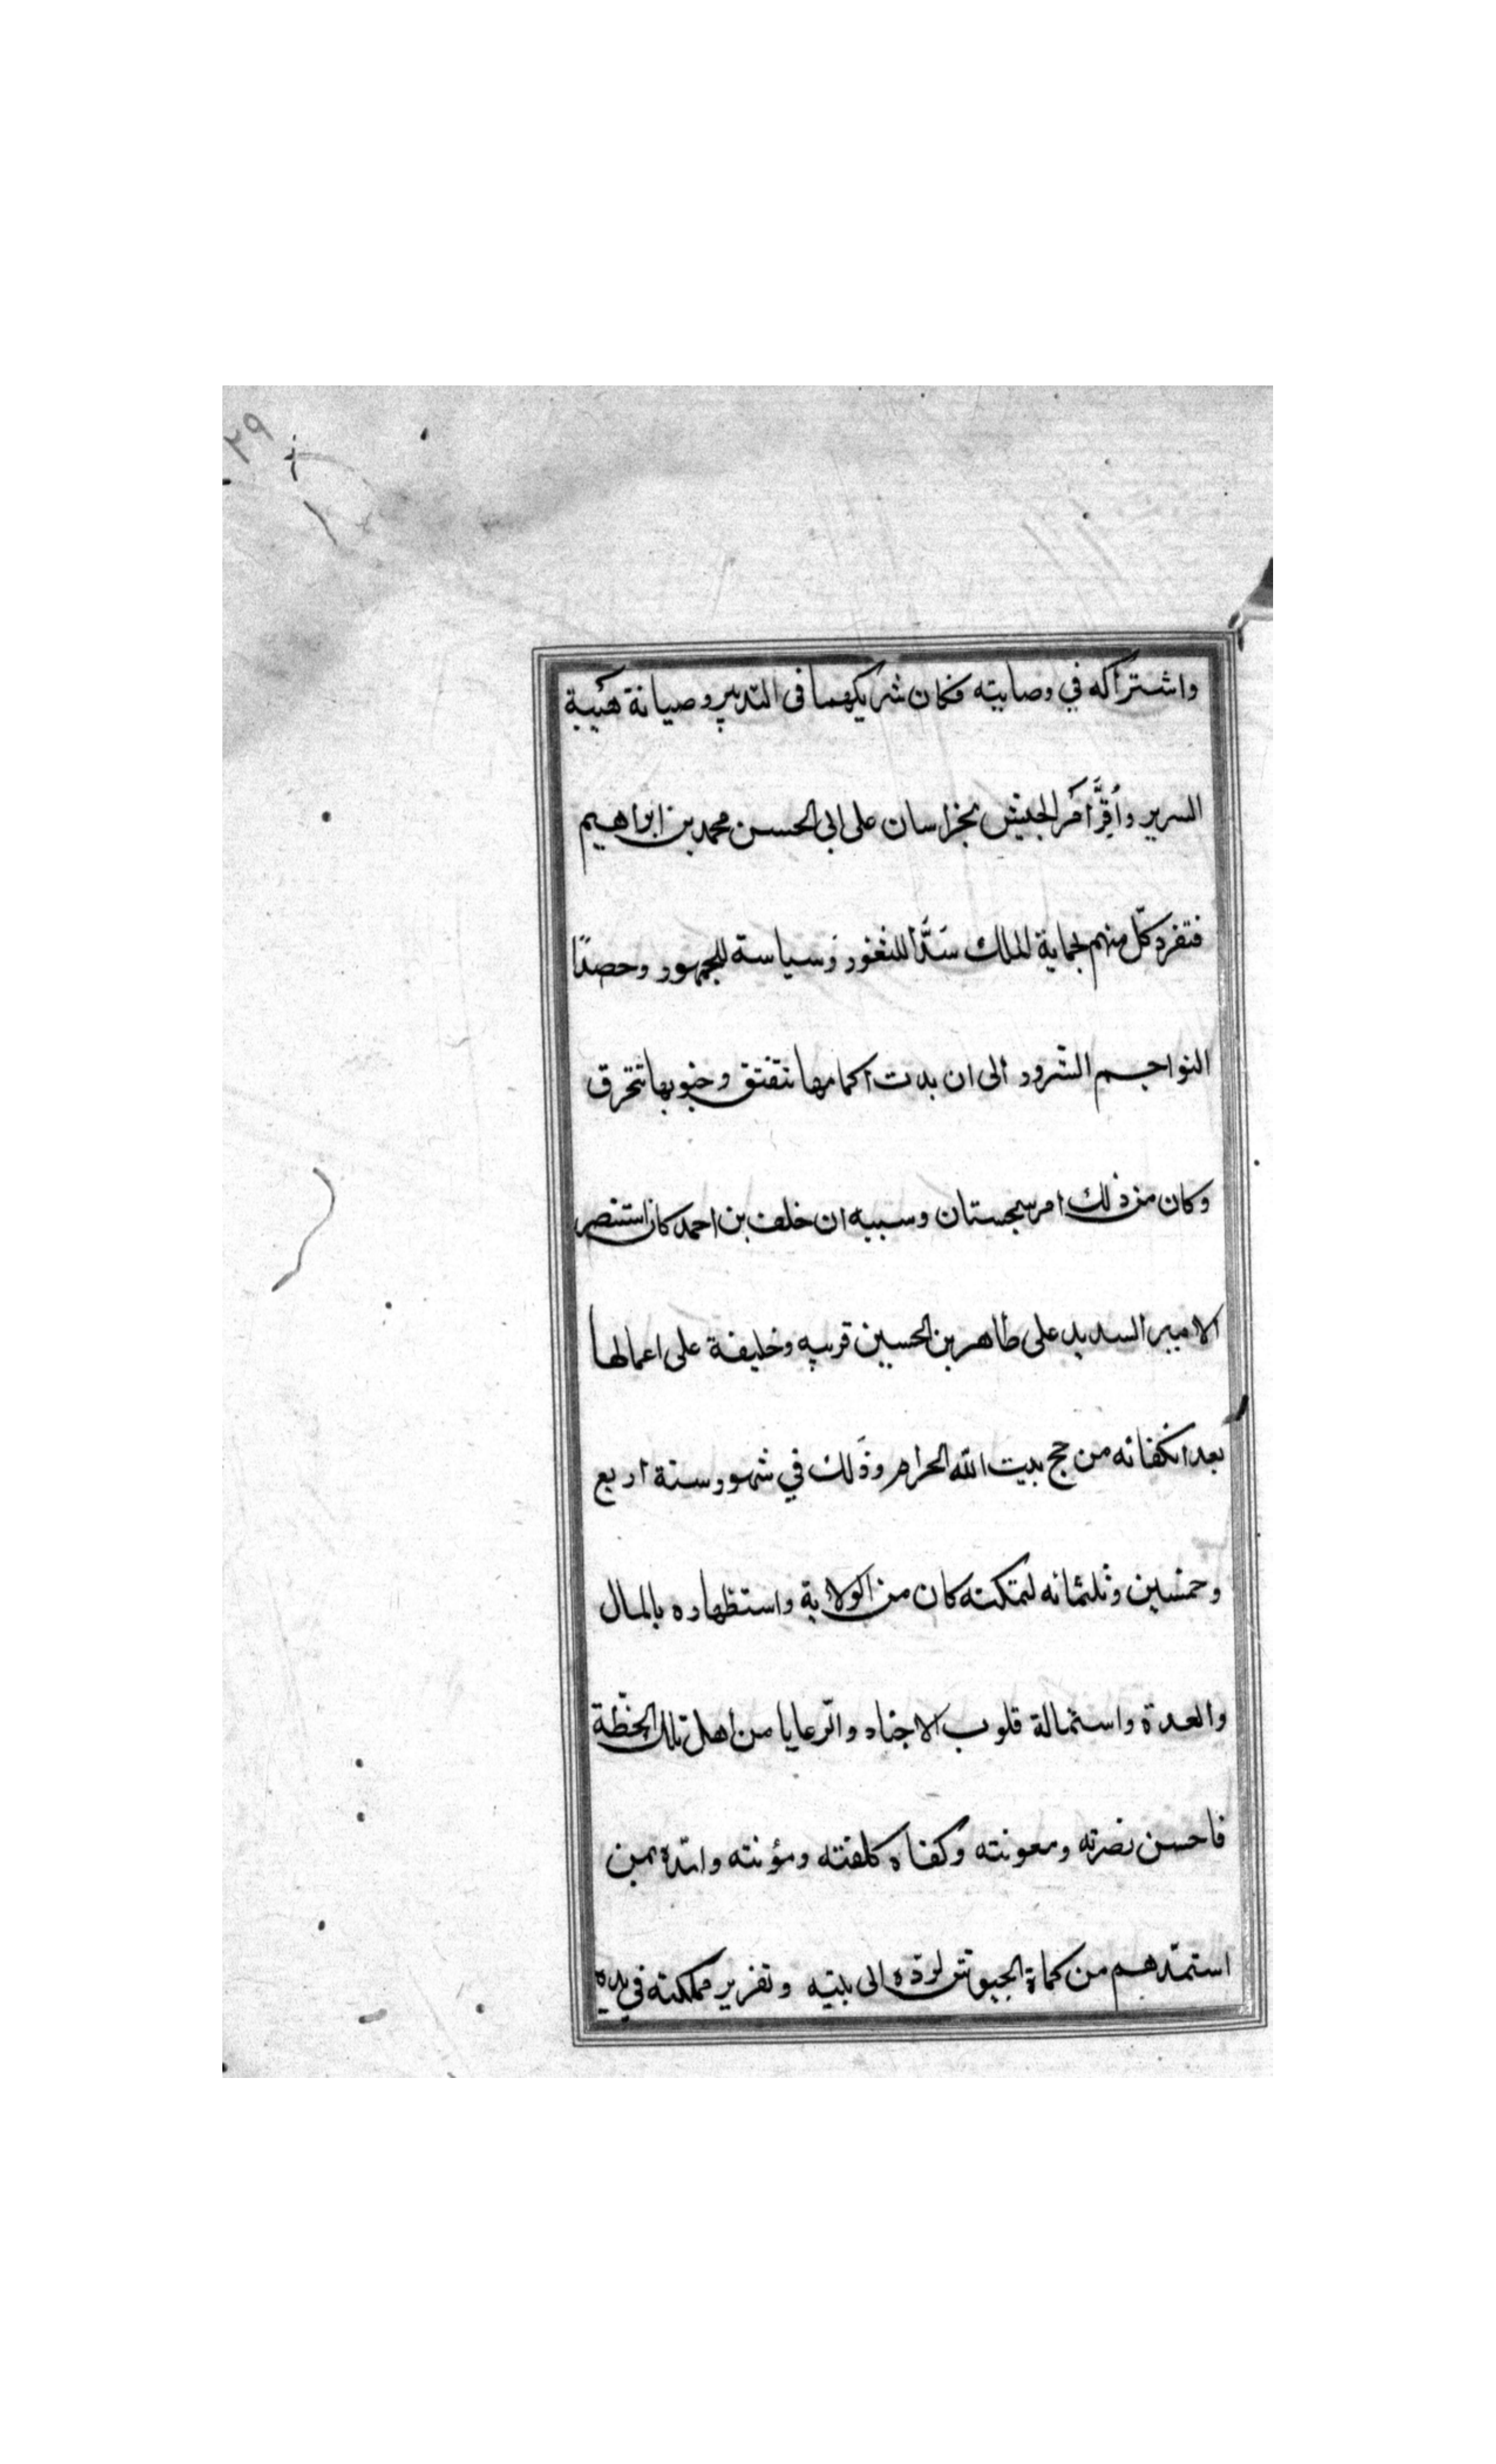 ٢٩
واشتراكه في وصايته فكان شريكهما في التدبير وصيانة هيبة
السرير واُقِرَّ امر الجيش بخراسان على ابي الحسن محمد بن ابراهيم
فتفرد كلّ منهم لحماية الملك سَدًّا للثغور وَسياسة للجمهور وحصدًا
النواجم الشرور الى ان بدت اكمامها تتفتق وجنوبها تتخرق
وكان من ذلك امر سجستان وسببه ان خلف بن احمد كان استنصر
الامير السديد على طاهر بن الحسين قريبه وخليفة على اعمالها
بعد انكفائه من حج بيت الله الحرام وذلك في شهور سنة اربع
وخمسين وثلثمائه لتمكنه كان من الولاية واستظهاره بالمال
والعدة واستمالة قلوب الاجناد والرعايا من اهل تلك الخطّة
فاحسن نصرته ومعونته وكفاه كلفته ومؤنته وامدّه بمن
استمدّهم من كماة الجيوش لردّه الى بيته وتقرير مملكته في يديه